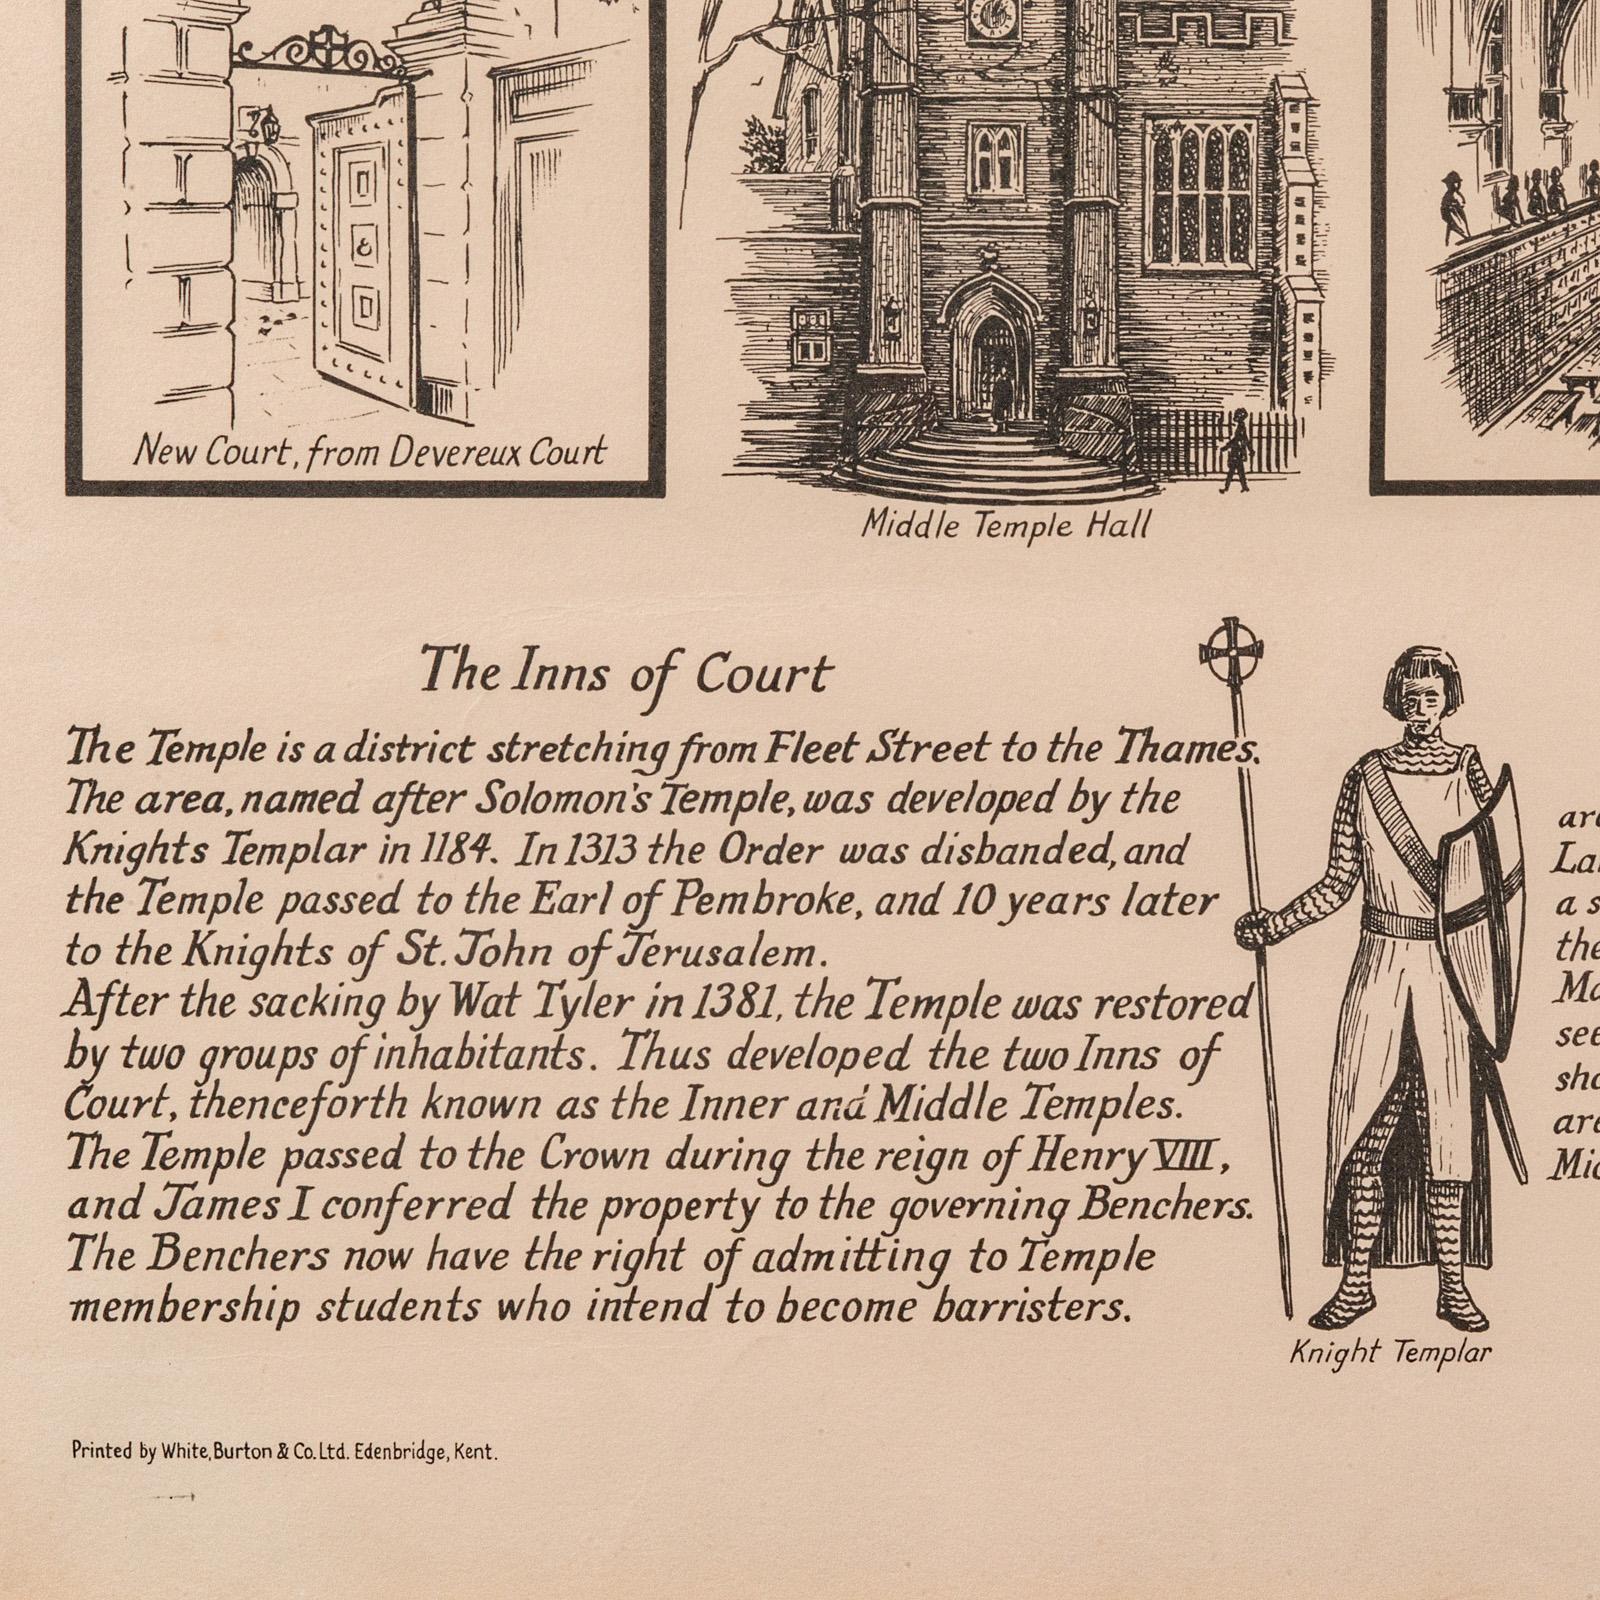 New Court, from Devereux Court
Middle Temple Hall
The Inns of Court
The Temple is a district stretching from Fleet Street to the Thames.
The area, named after Solomon's Temple, was developed by the
Knights Templar in 1184. In 1313 the Order was disbanded, and
the Temple passed to the Earl of Pembroke, and 10 years later
to the Knights of St. John of Jerusalem.
After the sacking by Wat Tyler in 1381, the Temple was restored
by two groups of inhabitants. Thus developed the two Inns of
Court, thenceforth known as the Inner and Middle Temples.
The Temple passed to the Crown during the reign of Henry VIII,
and James I conferred the property to the governing Benchers.
The Benchers now have the right of admitting to Temple
membership students who intend to become barristers.
Knight Templar
a
the
see
Printed by White, Burton & Co. Ltd. Edenbridge, Kent.